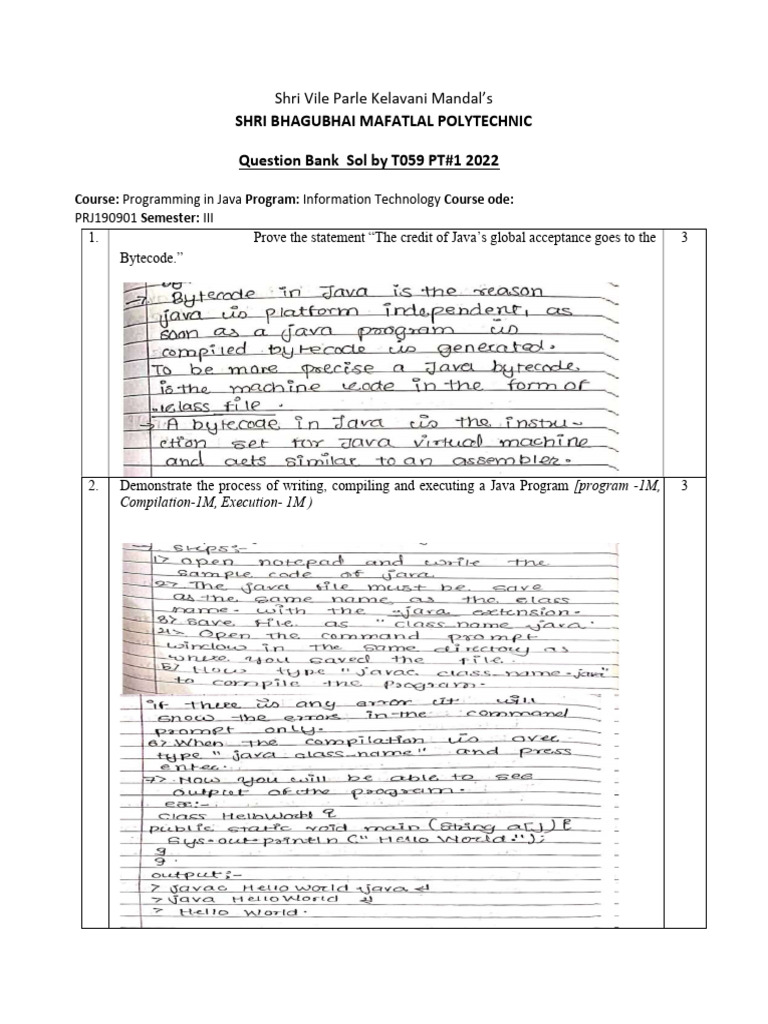 Shri Vile Parle Kelavani Mandal's
SHRI BHAGUBHAI MAFATLAL POLYTECHNIC
Question Bank Sol by T059 PT#1 2022
Course: Programming in Java Program: Information Technology Course ode:
PRJ190901 Semester: III
1. Prove the statement “The credit of Java's global acceptance goes to the 3
Bytecode.”
→ Bytecode in Java is the reason
java is platform independent, as
soon as a java program is
compiled bytecode is generated.
To be more precise a Java bytecode
is the machine code in the form of
.class file.
→ A bytecode in Java is the instru-
ction set for Java virtual machine
and acts similar to an assembler.
2. Demonstrate the process of writing, compiling and executing a Java Program [program -1M, 3
Compilation-1M, Execution- 1M)
→ Steps:-
1> Open notepad and write the
sample code of java.
2> The java file must be save
as the same name as the class
name. with the .java extension.
3> Save file as "class name .java.
4> Open the command prompt
window in the same directory as
where you saved the file.
5> Now type "javac class_name.java"
to compile the program.
if there is any error it will
show the errors in the command
prompt only.
6> When the compilation is over
type "java class_name" and press
enter.
7> Now you will be able to see
output of the program.
ex:-
class HelloWorld {
public static void main (String a[]) {
Sys.out.println ("Hello World.");
}
}
output:-
> javac HelloWorld .java ↵
> java HelloWorld ↵
> Hello World.